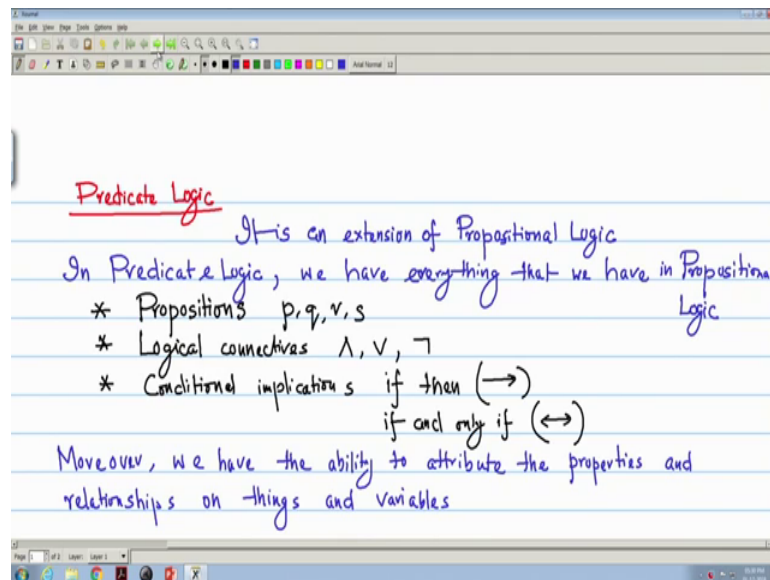 Journal
File Edit View Page Tools Options Help
Arial Normal 12
Predicate Logic
It is an extension of Propositional Logic
In Predicate Logic, we have everything that we have in Propositional
Logic
* Propositions p, q, r, s
* Logical connectives ∧, ∨, ¬
* Conditional implications if then (→)
if and only if (↔)
Moreover, we have the ability to attribute the properties and
relationships on things and variables
Page 1 of 2 Layer: Layer 1